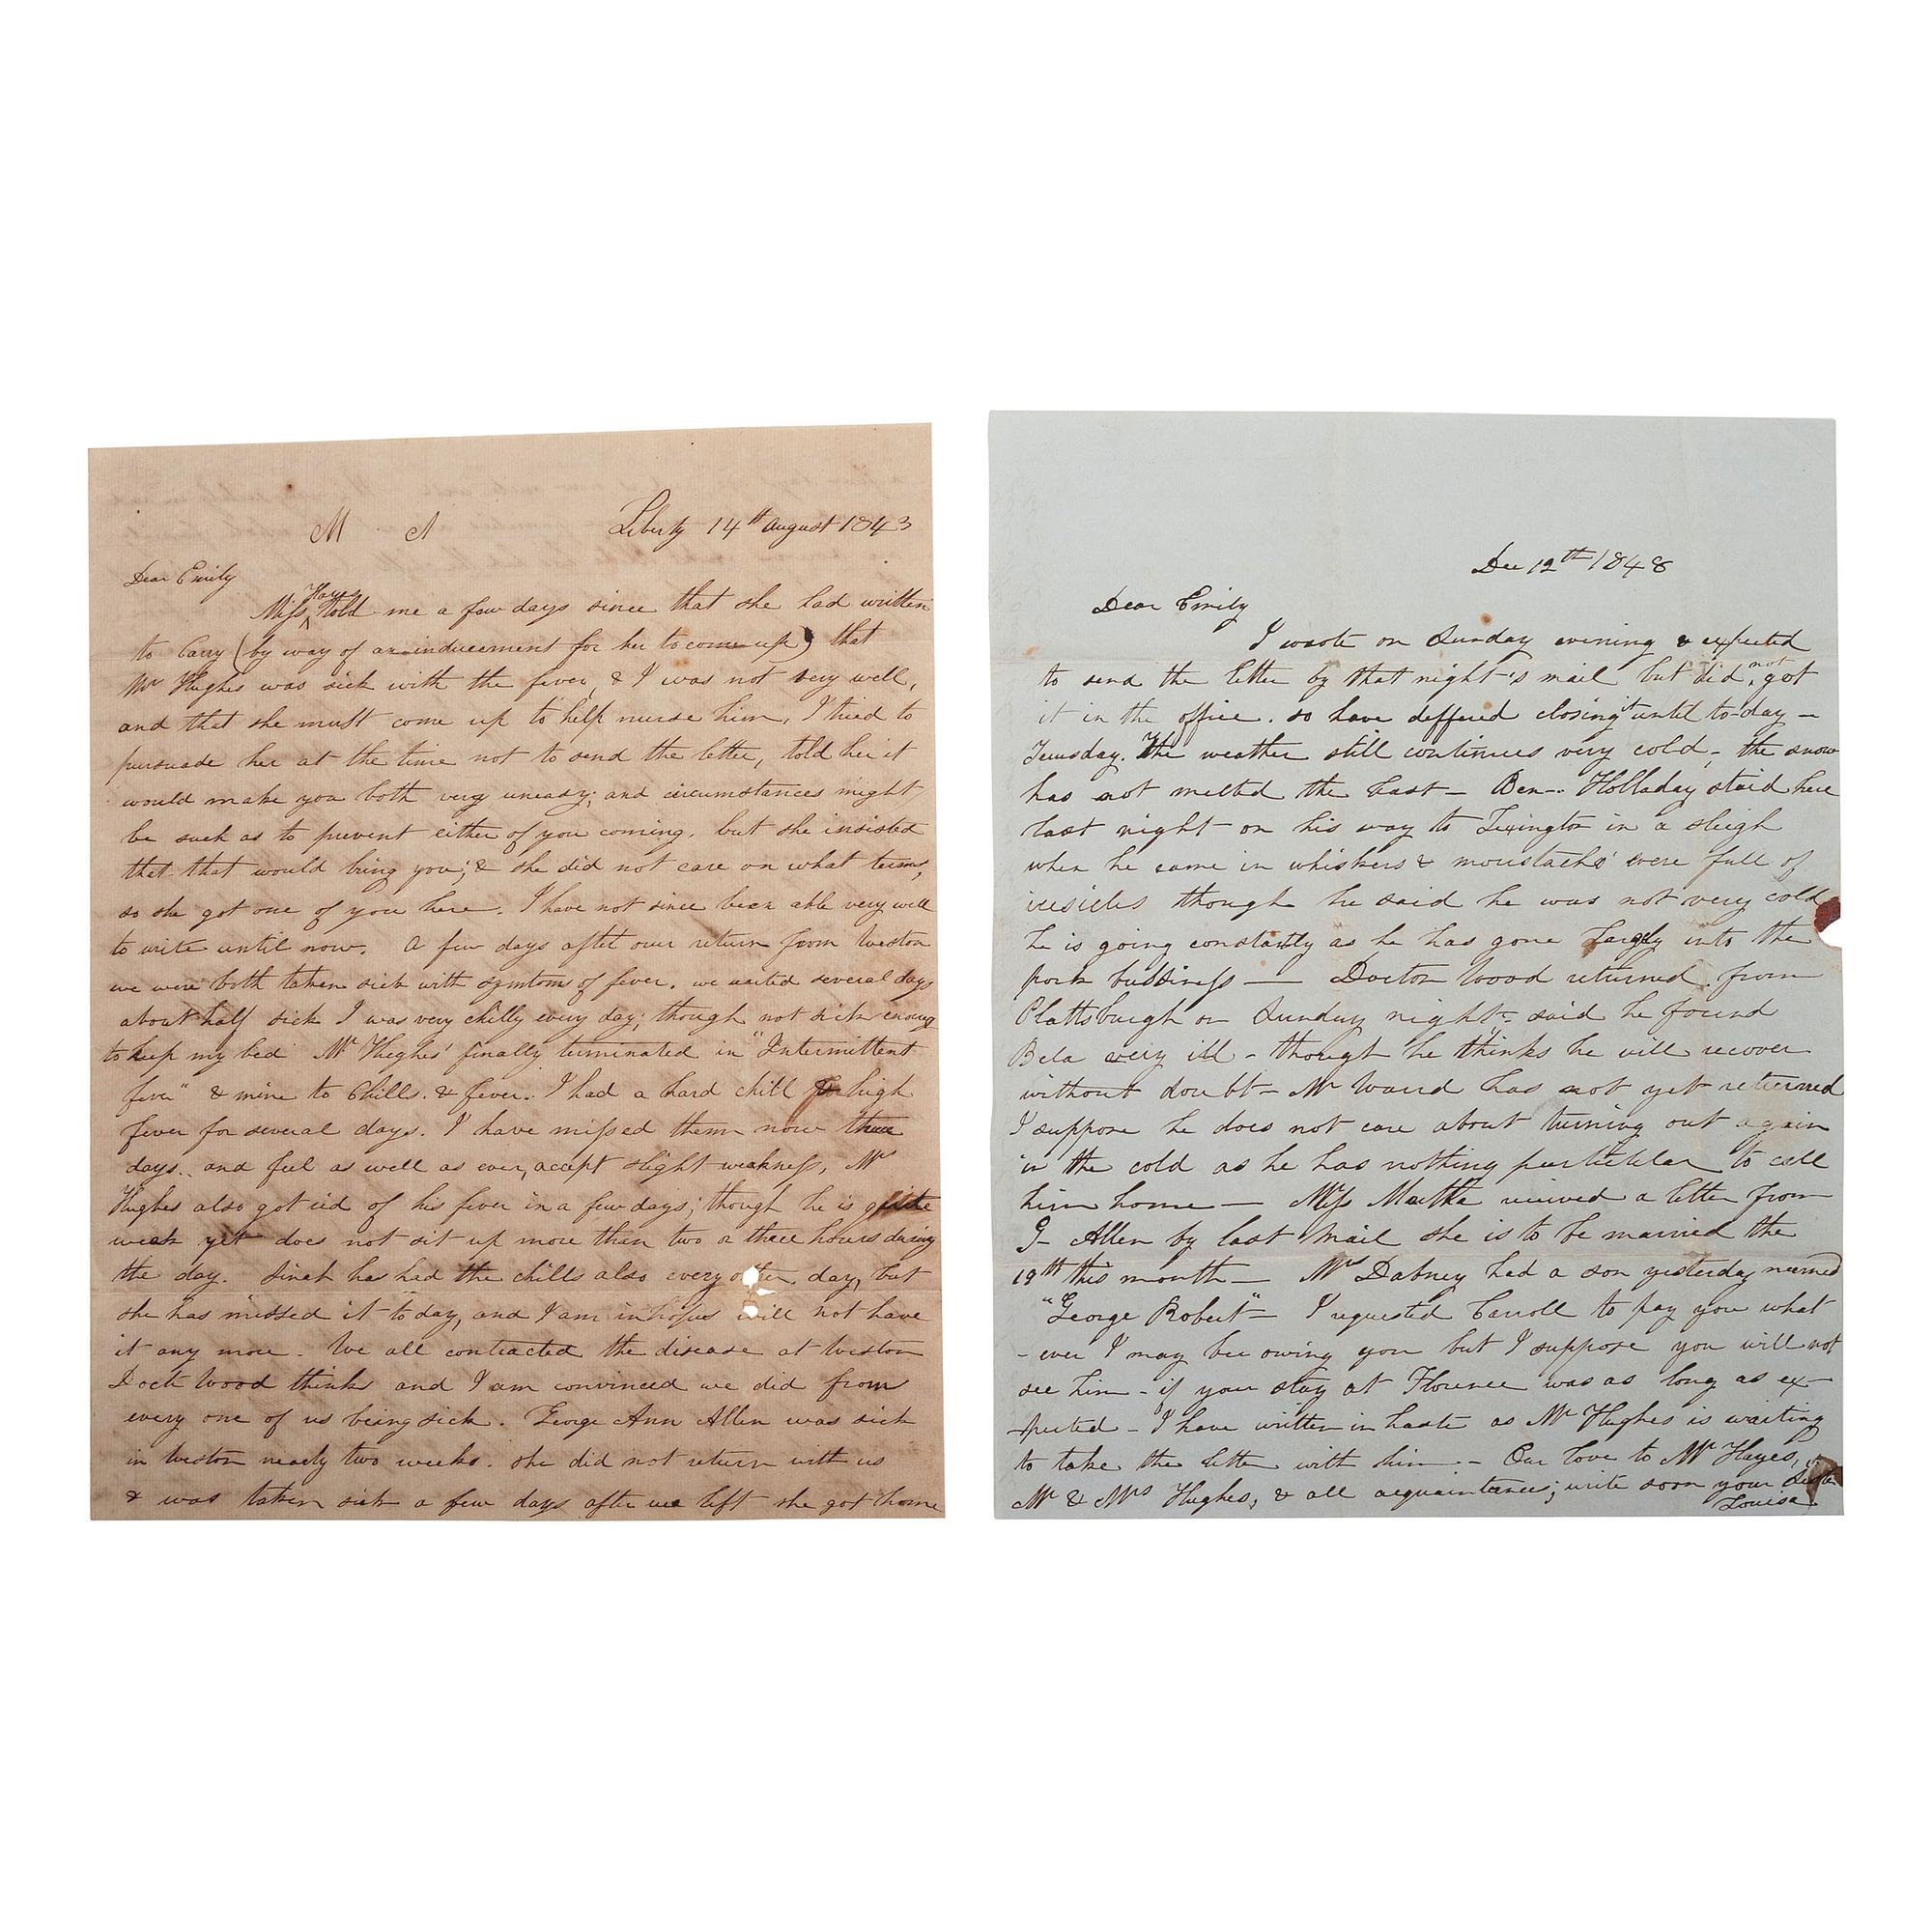 M A Liberty 14th August 1843
Dear Emily
Miss Harry told me a few days since that she had written
to Carry (by way of an inducement for her to come up) that
Mr Hughes was sick with the fever, & I was not very well,
and that she must come up to help nurse him, I tried to
pursuade her at the time not to send the letter, told her it
would make you both very uneasy; and circumstances might
be such as to prevent either of you coming. but she insisted
that that would bring you; & she did not care on what terms,
so she got one of you here. I have not since been able very well
to write until now. A few days after our return from Weston
we were both taken sick with symtoms of fever. we waited several days
about half sick I was very chilly every day; though not sick enoug
to keep my bed Mr Hughes' finally terminated in "Intermittent
fever" & mine to Chills. & fever. I had a hard chill & high
fever for several days. I have missed them now three
days. and feel as well as ever, accept slight weakness, Mr
Hughes also got rid of his fever in a few days; though he is quite
weak yet does not sit up more then two or three hours during
the day. Sinah has had the chills also every other day, but
she has missed it to day, and I am in hopes will not have
it any more. We all contracted the disease at Weston
Doct Wood thinks and I am convinced we did from
every one of us being sick. George Ann Allen was sick
in Weston nearly two weeks. she did not return with us
& was taken sick a few days after we left she got home
Dec 12th 1848
Dear Emily
I wrote on Sunday evening & expected
to send the letter by that night's mail but did not got
it in the office. so have deffered closing it until to-day -
Tuesday. The weather still continues very cold, the snow
has not melted the least - Ben-- Holladay staid here
last night on his way to Lexington in a sleigh
when he came in whiskers & moustache were full of
icesicles though he said he was not very cold
he is going constantly as he has gone largely into the
pork bussiness - Doctor Wood returned from
Plattsburgh on Sunday night, said he found
Bela very ill - though he thinks he will recover
without doubt - Mr Ward has not yet returned
I suppose he does not care about turning out again
in the cold as he has nothing particular to call
him home - Miss Martha received a letter from
G- Allen by last Mail she is to be married the
19th this month - Mrs Dabney had a son yesterday named
"George Robert" - I requested Carroll to pay you what
- ever I may bee owing you but I suppose you will not
see him - if you stay at Florence was as long as ex-
-pected - I have written in haste as Mr Hughes is waiting
to take the letter with him - Our love to Mr Hayes,
Mr & Mrs Hughes, & all acquaintances; write soon your Sister
Louisa